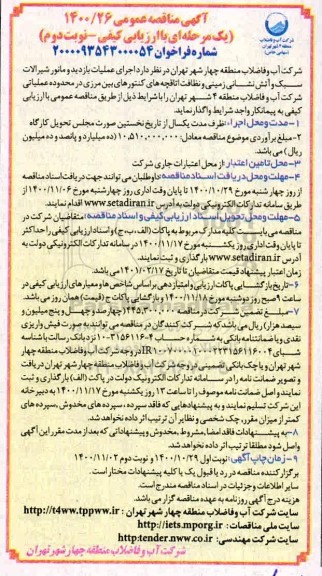 شرکت آب و فاضلاب
منطقه ۴ شهر تهران
(سهامی خاص)
آگهی مناقصه عمومی ۱۴۰۰/۲۶
(یک مرحله‌ای با ارزیابی کیفی - نوبت دوم)
شماره فراخوان ۲۰۰۰۰۹۳۵۴۳۰۰۰۰۵۴
شرکت آب و فاضلاب منطقه چهار شهر تهران در نظر دارد اجرای عملیات بازدید و مانور شیرآلات
سبک و آتش نشانی زمینی و نظافت اتاقچه های کنتورهای بین مرزی در محدوده عملیاتی
شرکت آب و فاضلاب منطقه ۴ شهر تهران را با شرایط ذیل از طریق مناقصه عمومی با ارزیابی
کیفی به پیمانکار واجد شرایط واگذار نماید.
۱-مدت و محل اجرا: ظرف مدت یکسال از تاریخ نخستین صورت مجلس تحویل کارگاه
۲-مبلغ برآوردی موضوع مناقصه معادل: ۱۰,۵۱۰,۰۰۰,۰۰۰ (ده میلیارد و پانصد و ده میلیون
ریال) می باشد.
۳-محل تامین اعتبار: از محل اعتبارات جاری شرکت
۴-مهلت و محل دریافت اسناد مناقصه: داوطلبان می توانند جهت دریافت اسناد مناقصه
از روز چهار شنبه مورخ ۱۴۰۰/۱۰/۲۹ تا پایان وقت اداری روز چهارشنبه مورخ ۱۴۰۰/۱۱/۰۶ از
طریق سامانه تدارکات الکترونیکی دولت به آدرس www.setadiran.ir اقدام نمایند.
۵-مهلت و محل تحویل اسناد ارزیابی کیفی و اسناد مناقصه: متقاضیان شرکت در
مناقصه می بایست کلیه مدارک مربوط به پاکات (الف، ب، ج) و اسناد ارزیابی کیفی را حداکثر
تا پایان وقت اداری روز یکشنبه مورخ ۱۴۰۰/۱۱/۱۷ در سامانه تدارکات الکترونیکی دولت به
آدرس www.setadiran.ir بارگذاری و ثبت نمایند.
زمان اعتبار پیشنهاد قیمت متقاضیان تا تاریخ ۱۴۰۱/۰۲/۱۷ می باشد.
۶-تاریخ بازگشایی پاکات: ارزیابی و امتیازدهی بر اساس شاخص ها و معیارهای ارزیابی کیفی در
ساعت ۹ صبح روز دوشنبه مورخ ۱۴۰۰/۱۱/۱۸ و بازگشایی پاکات ج (قیمت) همان روز می باشد.
۷-مبلغ تضمین شرکت در مناقصه ۴۴۵,۳۰۰,۰۰۰ (چهارصد و چهل و پنج میلیون و
سیصد هزار) ریال می باشد که شرکت کنندگان در مناقصه می توانند به صورت فیش واریزی
نقدی و یا ضمانتنامه بانکی به شماره حساب
در وجه شرکت آب و فاضلاب منطقه چهار
شهر تهران و یا چک بانکی تضمینی در وجه شرکت آب و فاضلاب منطقه چهار شهر تهران دریافت
و تصویر ضمانت نامه را در سامانه تدارکات الکترونیک دولت در پاکت (الف) بارگذاری و ثبت
نمایند و اصل ضمانت نامه موصوف را تا ساعت ۱۳ روز یکشنبه مورخ ۱۴۰۰/۱۱/۱۷ به دبیرخانه
این شرکت تسلیم نمایند و به پیشنهادهایی که فاقد سپرده، سپرده های مخدوش، سپرده های
کمتر از میزان مقرر، چک شخصی و نظایر آن ترتیب اثر داده نخواهد شد.
۸-به پیشنهادات فاقد امضاء، مشروط، مخدوش و پیشنهاداتی که بعد از مدت مقرر این آگهی
واصل شود مطلقا ترتیب اثر داده نخواهد شد.
۹-زمان چاپ آگهی: نوبت اول ۱۴۰۰/۱۰/۲۹ و نوبت دوم ۱۴۰۰/۱۱/۰۲
برگزار کننده مناقصه در رد یا قبول یک یا کلیه پیشنهادات مختار است.
سایر اطلاعات و جزئیات در اسناد مناقصه مندرج است.
هزینه درج آگهی روزنامه به عهده مناقصه گزار می باشد.
سایت شرکت آب و فاضلاب منطقه چهار شهر تهران: http://t4ww.tppww.ir
سایت ملی مناقصات: http://iets.mporg.ir
سایت شرکت مهندسی: http:tender.nww.co.ir
شرکت آب و فاضلاب منطقه چهار شهر تهران